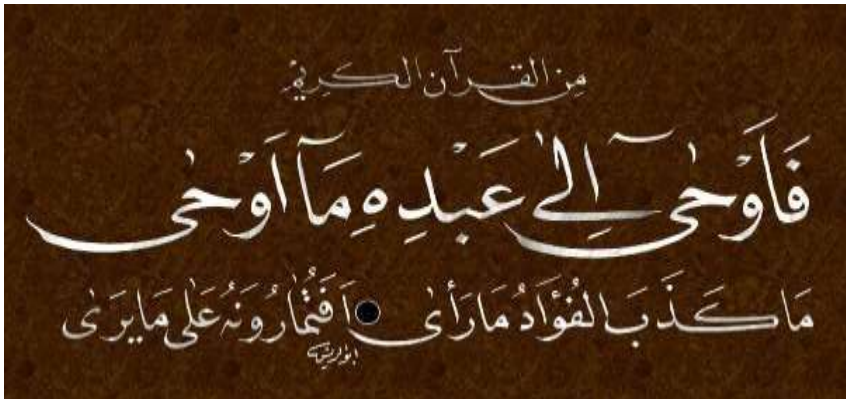 مِن القرآن الكريم
فَأَوْحَىٰٓ إِلَىٰ عَبْدِهِ مَآ أَوْحَىٰ
مَا كَذَبَ الفُؤَادُ مَا رَأَىٰ ● اَفَتُمَارُونَهُ عَلَىٰ مَا يَرَىٰ